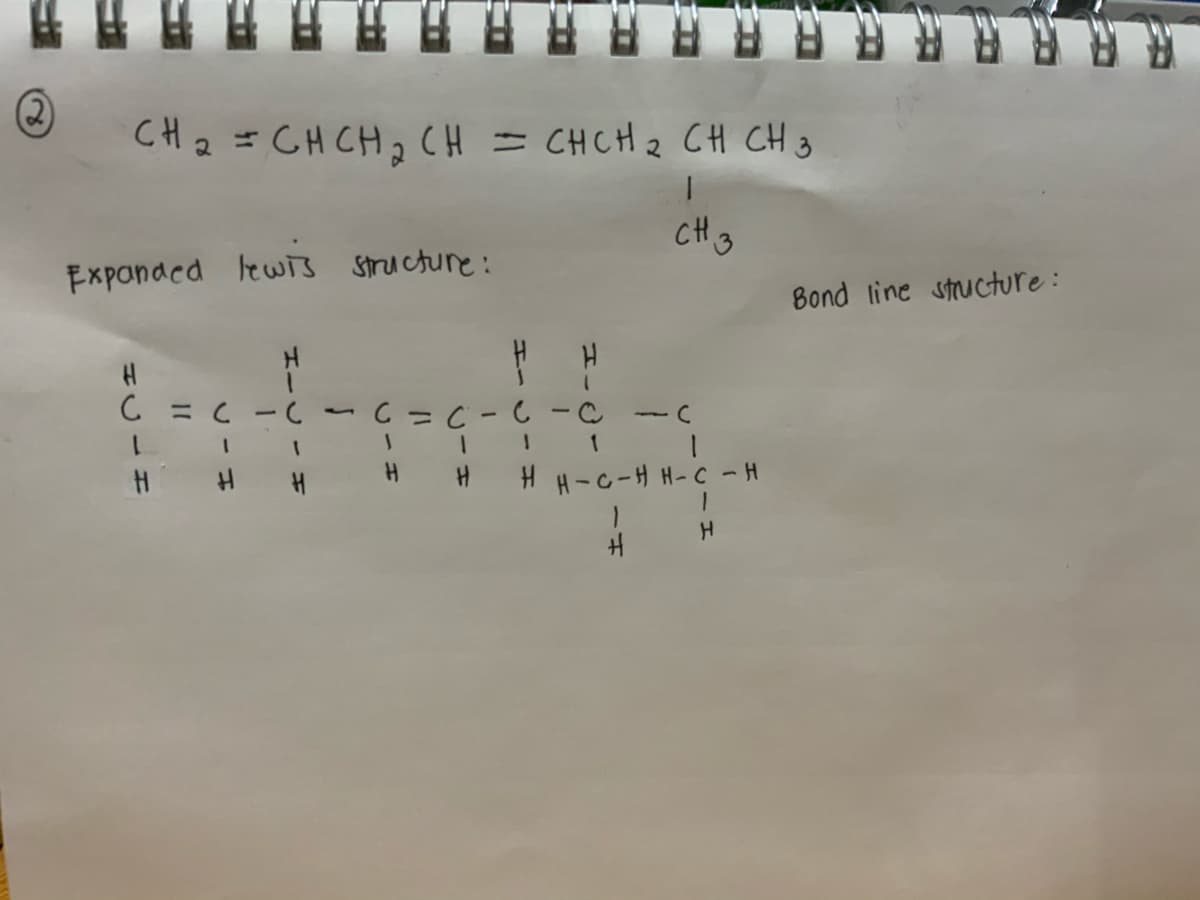 ②
CH₂ = CHCH₂CH = CHCH₂ CH CH₃
|
CH₃
Expanded lewis structure:
Bond line structure:
H H H H
| | |
C = C - C - C = C - C - C - C
| | | | | | | |
H H H H H H H-C-H H-C-H
| |
H H